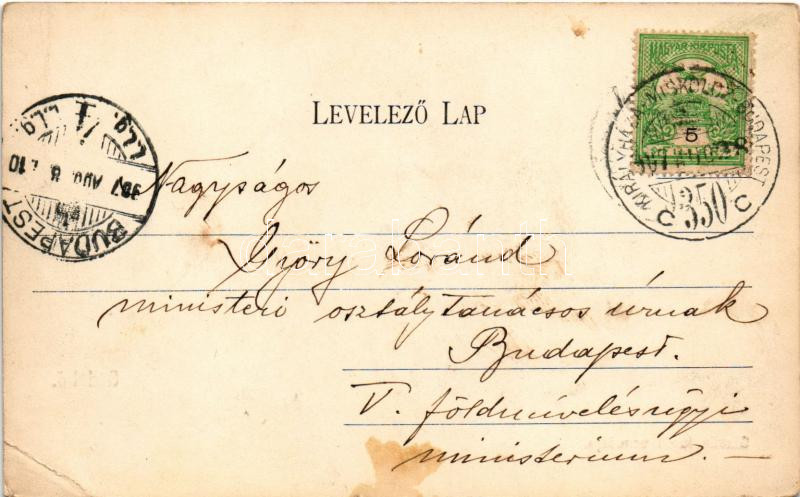 MAGYAR KIR. POSTA
5
KIRÁLYHÁZA-MISKOLCZ-BUDAPEST
350
C C
LEVELEZŐ LAP
BUDAPEST
907 AUG. 8
Nagyságos
Győry Loránd
ministeri osztálytanácsos úrnak
Budapest.
V. földmüvelésügyi
ministerium. —